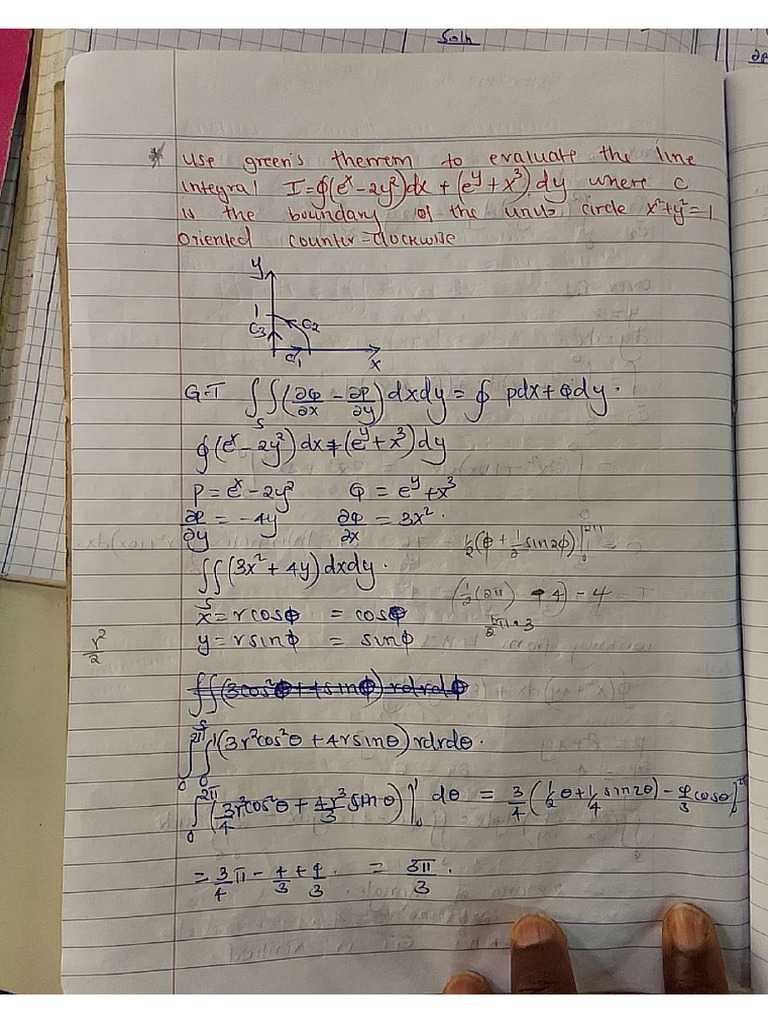 Soln
* Use green's themrem to evaluate the line
integral I = ∮(e^x - 2y²)dx + (e^y + x³).dy where C
is the boundary of the unit circle x²+y²=1
Oriented counter-clockwise
y
1
C3 C2
C1 x
G.T ∫∫_S (∂Q/∂x - ∂P/∂y) dxdy = ∮ Pdx + Qdy.
∮(e^x - 2y²)dx + (e^y + x³)dy
P = e^x - 2y² Q = e^y + x³
∂P/∂y = -4y ∂Q/∂x = 3x².
½(ϕ + ½ sin2ϕ)|₀^2π
∫∫_S (3x² + 4y) dxdy.
(½(2π) + 4) - 4
x = rcosϕ = cosϕ
y = rsinϕ = sinϕ
r²/2
∫∫_S (3cos²ϕ + 4sinϕ) rdrdϕ
∫₀^2π ∫₀^1 (3r²cos²θ + 4rsinθ) rdrdθ.
∫₀^2π (3/4 r²cos²θ + 4r³/3 sinθ)|₀^1 dθ = 3/4 (½θ + ¼ sin2θ) - 4/3 cosθ]₀^2π
= 3/4 π - 4/3 + 4/3. = 3π/3.